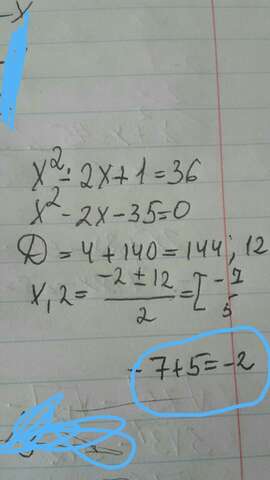 -x
x² - 2x + 1 = 36
x² - 2x - 35 = 0
D = 4 + 140 = 144; 12
x,2 = \frac{-2 ± 12}{2} = [ -7 5
-7+5=-2